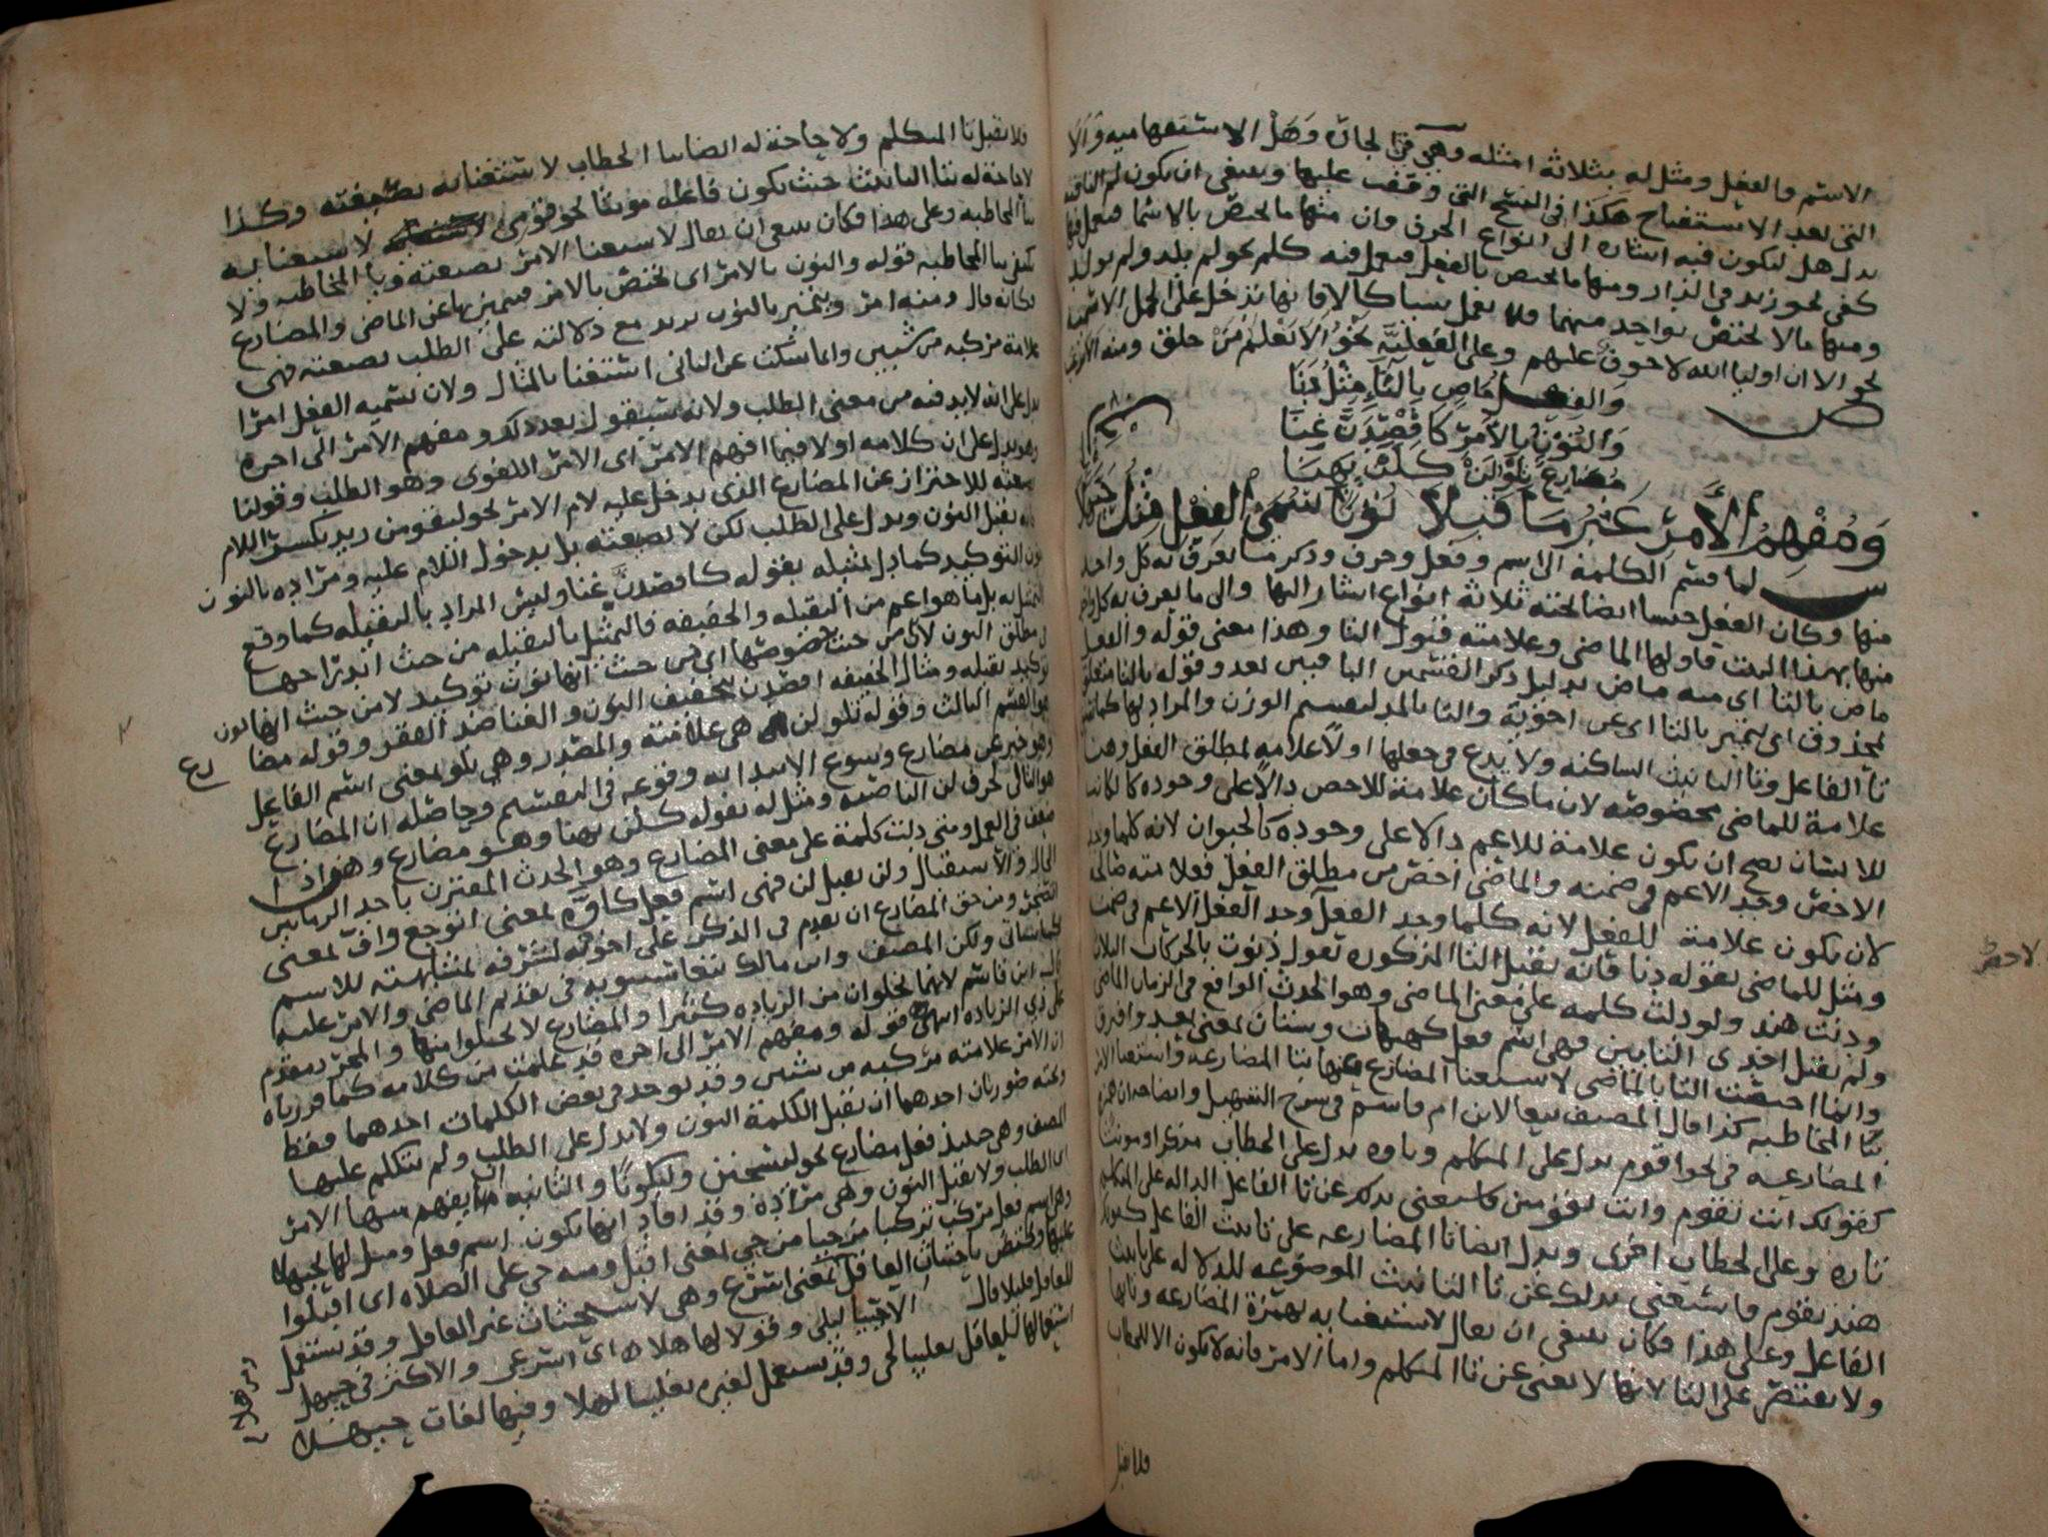 الاسم والفعل ومثل له بثلاثة امثله وهي في الجاره وهل الاستفهاميه وألا
التي بعد الاستفتاح هكذا في النسخ التي وقفت عليها وينبغي ان يكون لم النافيه
بدل هل ليكون فيه اشاره الى انواع الحرف وان منها ما يختص بالاسما فيعمل فيها
كفي نحو زيد في الدار ومنها ما يختص بالفعل فيعمل فيه كلم نحو لم يلد ولم يولد
ومنها مالا يختص بواحد منهما فلا يعمل شيا كالا فانها تدخل على الجمل الاسميه
نحو الا ان اوليا الله لا خوف عليهم وعلى الفعلية نحو الا يعلم من خلق
ص
والفعل ماض بالتاء مثل دنا
والنون بالامر كاقصدن غنا
مضارع يتلو لن كلن يهنا
ومفهم الأمر غير ما قبلا نونا لتسمى الفعل مثل حيهلا
ش لما قسم الكلمة الى اسم وفعل وحرف وذكر ما يعرف به كل واحد
منها وكان الفعل جنسا ايضا تحته ثلاثة انواع اشار اليها والى ما يعرف به كل واحد
منها بهذا البيت فاولها الماضي وعلامته قبول التا وهذا معنى قوله والفعل
ماض بالتا اي منه ماض بدليل ذكر القسمين الباقيين بعد وقوله بالتا متعلق
بمحذوف اي يتميز بالتا اي عن اخويه والتا بالمد ليستقيم الوزن والمراد بها
تا الفاعل وتا التانيث الساكنه ولا بدع في جعلها اولاً علامه لمطلق الفعل وهنا
علامة للماضي بخصوصه لان ما كان علامة للاخص دالاً على وجوده
للانسان يصح ان يكون علامة للاعم دالا على وجوده كالحيوان لانه كلما وجد
الاخص وجد الاعم في ضمنه والماضي اخص من مطلق الفعل فعلامته صالحه
لان يكون علامة للفعل لانه كلما وجد الفعل وجد الفعل الاعم في ضمنه
ومثل للماضي بقوله دنا فانه يقبل التا المذكوره تقول دنوت بالحركات الثلاث
ودنت هند ولو دلت كلمه على معنى الماضي وهو الحدث الواقع في الزمان الماضي
ولم تقبل احدى التايين فهي اسم فعل كهيهات وشتان بمعنى بعد وافترق
وانما اختصت التا بالماضي لاستغنا المضارع عنها بتا المضارعه واستغنا الامر
بيا المخاطبه كذا قال المصنف تبعا لابن ام قاسم في شرح التسهيل وايضا
المضارعه في نحو اقوم يدل على المتكلم وتاوه يدل على الخطاب مذكرا او مونثا
كقولك انت تقوم وانت تقومين فاستغنى بذلك عن تا الفاعل الداله على المتكلم
تاره وعلى الخطاب اخرى ويدل ايضا تا المضارعه على تانيث الفاعل
هند تقوم فاستغنى بذلك عن تا التانيث الموضوعه للدلاله على تانيث
الفاعل وعلى هذا فكان ينبغي ان يقال لاستغنايه بهمزة المضارعه وتايها
ولا يقتصر على التا لانها لا تغني عن تا المتكلم واما الامر فانه لا يكون الا للمخاطب
فلا تقبل
فلا تقبل تا المتكلم ولا حاجة له ايضا بتا الخطاب لاستغنايه بصيغته وكذا
لا حاجة له بتا التانيث حيث يكون فاعله مونثا نحو قومي لاستغنايه
بيا المخاطبه وعلى هذا فكان ينبغي ان يقال لاستغنا الامر بصيغته ويا المخاطبه ولا
يكتفي بيا المخاطبه قوله والنون بالامر اي تختص بالامر فيتميز بها عن الماضي والمضارع
فكانه قال ومنه امر ويتميز بالنون يريد مع دلالته على الطلب بصيغته فهي
علامة مركبه من شيين وانما سكت عن الثاني استغنا بالمثال ولان تسميه الفعل امرا
يدل على انه لا بد فيه من معنى الطلب ولانه سيقول بعد ذلك ومفهم الامر الى اخره
وهو يدل على ان كلامه اولا فيما افهم الامر اي الامر اللغوي وهو الطلب وقولنا
بصيغته للاحتراز عن المضارع الذي يدخل عليه لام الامر نحو ليقومن زيد بكسر اللام
فانه يقبل النون ويدل على الطلب لكن لا بصيغته بل بدخول اللام عليه ومراده بالنون
نون التوكيد كما دل تمثيله بقوله كاقصدن غنا وليس المراد بالثقيله كما وقع
التمثيل به بل ما هو اعم من الثقيله والخفيفه فالتمثيل بالثقيله من حيث اندراجها
في مطلق النون لا من حيث خصوصها اي من حيث انها نون توكيد لا من حيث انها نون
توكيد ثقيله ومثال الخفيفه اقصدن بتخفيف النون والغنا ضد الفقر وقوله مضا
رع
هو القسم الثالث وقوله تلو لن هي علامته والمصدر وهي تلو بمعنى اسم الفاعل
وهو خبر عن مضارع وسوغ الابتدا به وقوعه في التقسيم وحاصله ان المضارع
هو التالي لحرف لن الناصبه ومثل له بقوله كلن يهنا وهو مضارع وهن اذا
ضعف في العمل ومتى دلت كلمة على معنى المضارع وهو الحدث المقترن باحد الزمانين
الحال والاستقبال ولن تقبل لن فهي اسم فعل كاوه بمعنى اتوجع واف بمعنى
اتضجر ومن حق المضارع ان يقدم في الذكر على اخويه لشرفه لمشابهته للاسم
ولكن المصنف وابن مالك تبعا سيبويه في تقديم الماضي والامر عليه
قال ابن قاسم لانهما يخلوان من الزياده كثيرا والمضارع لا يخلو منها والمجرد مقدم
على ذي الزياده انتهى قوله ومفهم الامر الى اخره قد علمت من كلامه كما قررناه
ان الامر علامته مركبه من شيين وقد يوجد في بعض الكلمات احدهما فقط
وتحته صورتان احدهما ان تقبل الكلمة النون ولا تدل على الطلب ولم يتكلم عليها
المصنف وهي حينئذ فعل مضارع نحو ليسجنن وليكونا والثانيه ان يفهم منها الامر
اي الطلب ولا تقبل النون وهي مراده وقد افاد انها تكون اسم فعل ومثل لها بحيهلا
وهي اسم فعل مركب تركيبا مزجيا من حي بمعنى اقبل ومنه حي على الصلاه اي اقبلوا
عليها ويختص باحتثاث العاقل بمعنى اسرع وهي لاستحثاث غير العاقل وقد تستعمل
للعاقل قليلا قال الا حييا ليلى وقولا لها هلا ه اي اسرعي والاكثر في حيهل
استعمالها للعاقل تغليبا لحي وقد تستعمل لغيره تغليبا لهلا وفيها لغات حيهلا